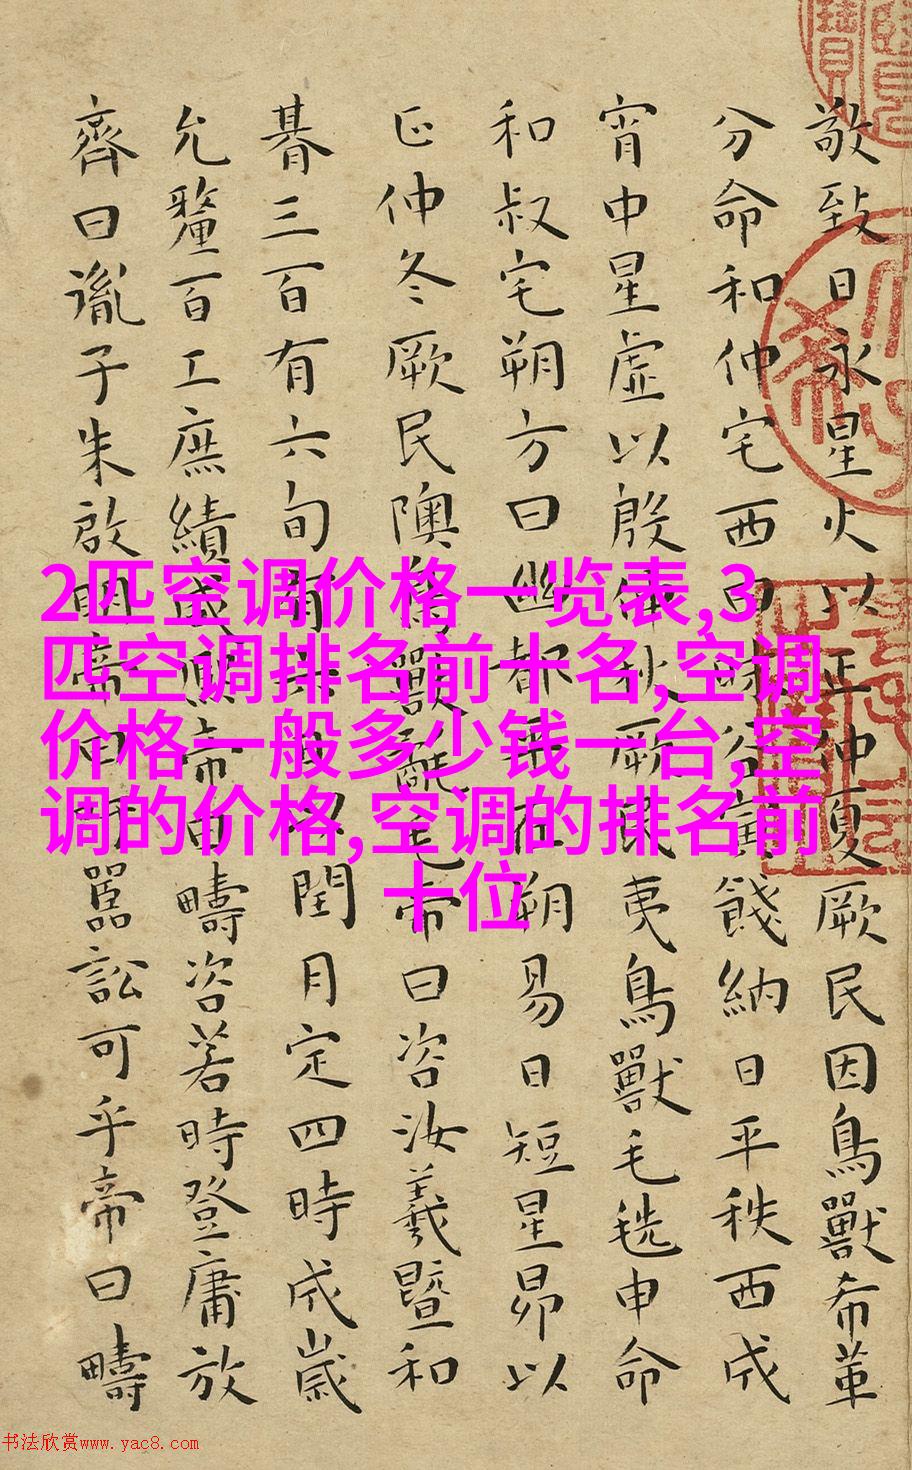 敬致日永星火以正仲夏厥民因鳥獸希革
分命和仲宅西曰昧谷寅餞納日平秩西成
宵中星虛以殷仲秋厥民夷鳥獸毛毨申命
和叔宅朔方曰幽都平在朔易日短星昴以
正仲冬厥民隩鳥獸氄毛帝曰咨汝羲暨和
朞三百有六旬有六日以閏月定四時成歲
允釐百工庶績咸熙帝曰疇咨若時登庸放
齊曰胤子朱啟明帝曰吁嚚訟可乎帝曰疇
2匹空调价格一览表,3
匹空调排名前十名,空调
价格一般多少钱一台,空
调的价格,空调的排名前
十位
书法欣赏www.yac8.com